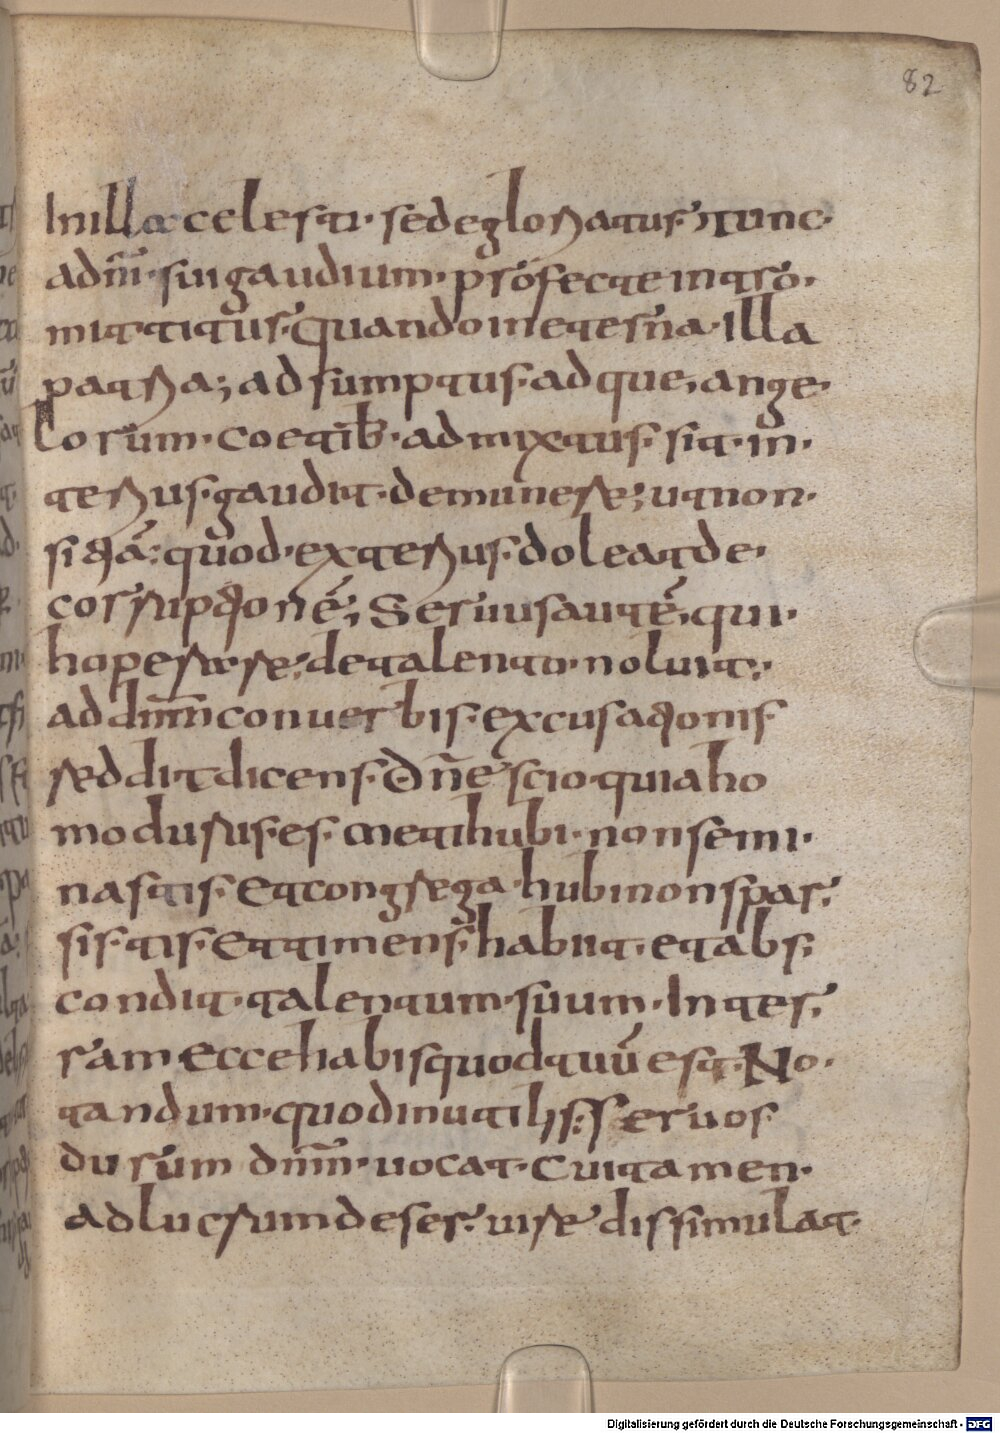 82
In illa celesti· sede gloriatur; tunc·
ad dn̄i· sui gaudium· profecte intro·
mittitur· Quando in eterna· illa
patria; adsumptus· adque, ange·
lorum· coetib· admixtus· sic· in·
terius· gaudiit· de munere; ut non·
si quod· exterius· doleat de·
corruptionē; Seruus autē, qui·
hoperare· de talento· noluit;
ad dnm̄ con uerbis· excusationis
reddit dicens· Dn̄e scio· quia ho
mo durus· es· metis hubi· non semi·
nastis· Et congrega· hubi non spar·
sistis· Et timens· habiit· et abs·
condit· talentum· suum· In ter·
ram Ecce habis quod tuū est· No·
tandum· quod inutilis· seruos
durum dnm̄· uocat· Cui tamen·
ad lucrum deser· uire dissimulat·
Digitalisierung gefördert durch die Deutsche Forschungsgemeinschaft - DFG